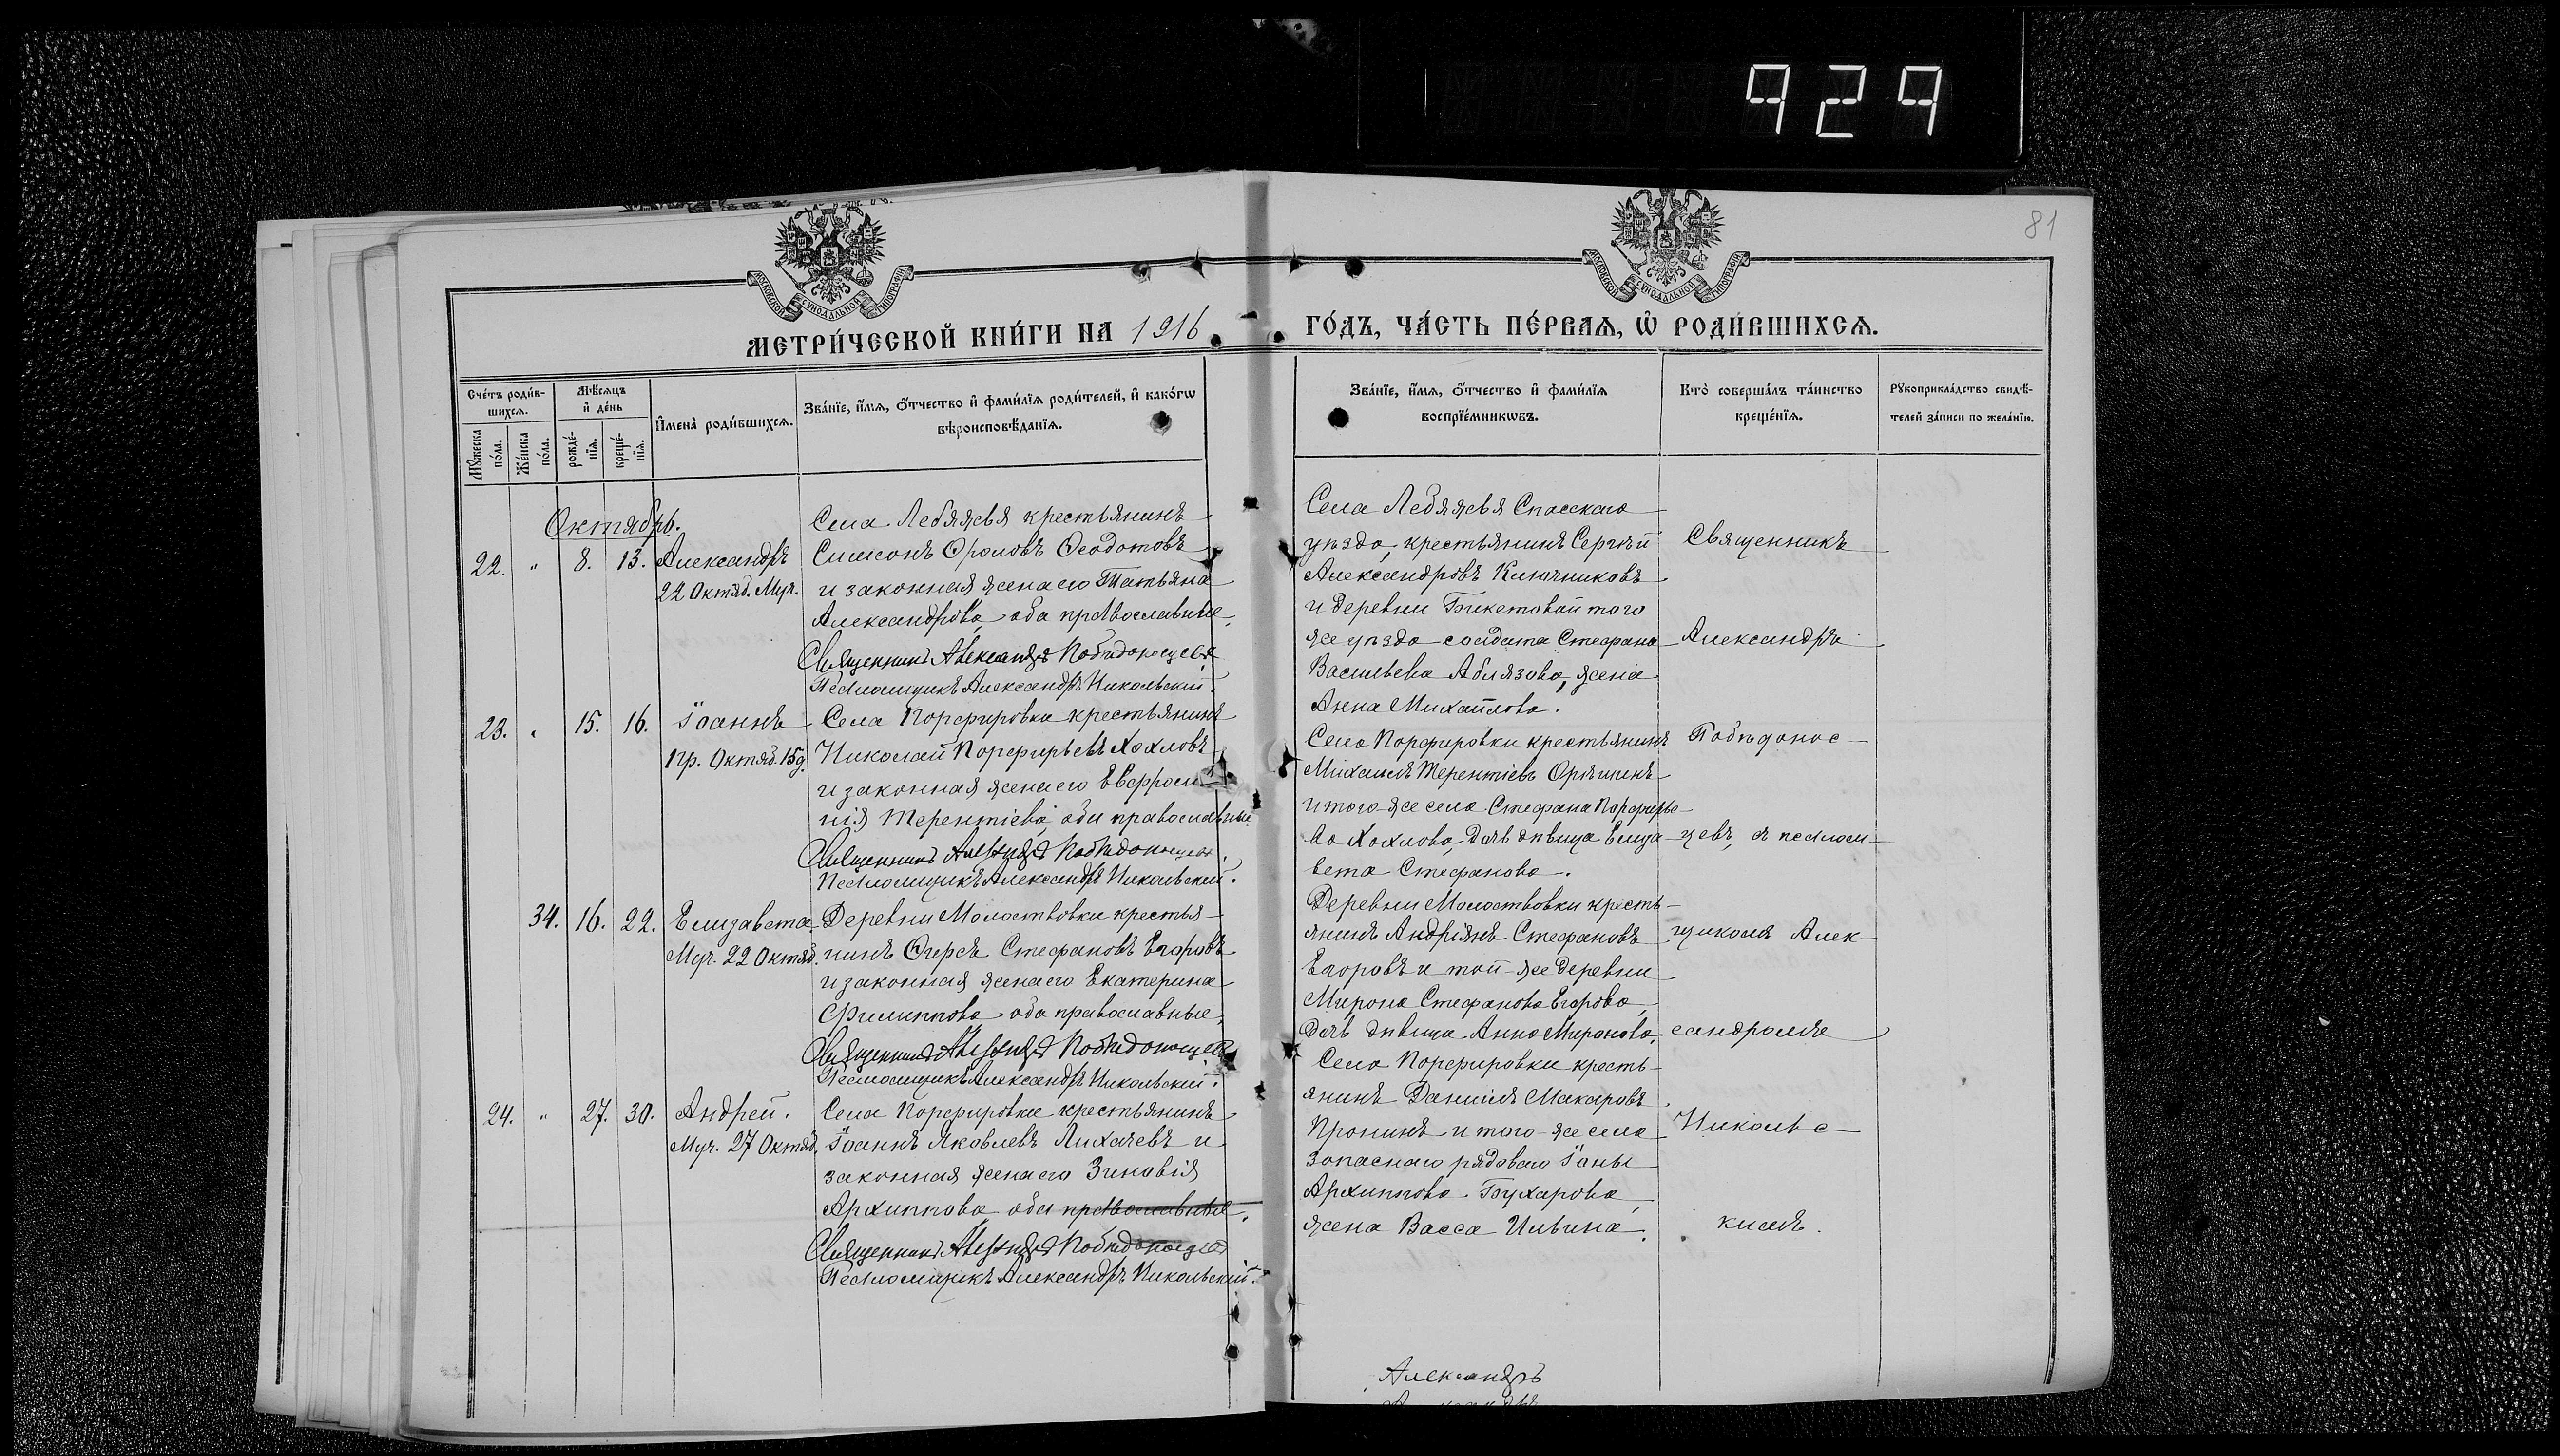 929
81
МОСКОВСКОЙ СѴНОДАЛЬНОЙ ТИПОГРАФІИ
МОСКОВСКОЙ СѴНОДАЛЬНОЙ ТИПОГРАФІИ
МЕТРИ́ЧЕСКОЙ КНИ́ГИ НА 1916
ГО́ДЪ, ЧА́СТЬ ПЕ́РВАѦ, Ѽ РОДИ́ВШИХСѦ.
Сче́тъ роди́в-
шихсѧ.
Мꙋ́жеска по́ла.
Же́нска по́ла.
Мѣ́сѧцъ
и҆ де́нь
рожде́-
нїѧ.
креще́-
нїѧ.
И҆мена̀ роди́вшихсѧ.
Зва́нїе, и҆́мѧ, ѻ҆́тчество и҆ фами́лїѧ роди́телей, и҆ како́гѡ
вѣроисповѣ́данїѧ.
Зва́нїе, и҆́мѧ, ѻ҆́тчество и҆ фами́лїѧ
воспрїе́мникѡвъ.
Кто̀ соверша́лъ та́инство
креще́нїѧ.
Рꙋкоприкла́дство свидѣ́-
телей за́писи по жела́нїю.
Октябрь.
22. " 8. 13. Александръ
22 Октяб. Муч.
Села Лебяжья крестьянинъ
Симеонъ Ѳроловъ Ѳеодотовъ
и законная жена его Татьяна
Александрова, оба православные.
Священникъ Александръ Побѣдоносцевъ
Псаломщикъ Александръ Никольскій.
Села Лебяжья Спасскаго
уѣзда, крестьянинъ Сергѣй
Александровъ Ключниковъ
и деревни Бикетовой того
же уѣзда солдата Стефана
Васильева Аблязова, жена
Анна Михайлова.
23. " 15. 16. Іоаннъ
Пр. Октяб. 15 д.
Села Порфировки крестьянинъ
Николай Порфирьевъ Хохловъ
и законная жена его Евфроси-
нія Терентіева, оби православные
Священникъ Александръ Побѣдоносцевъ.
Псаломщикъ Александръ Никольскій.
Села Порфировки крестьянинъ
Михаилъ Терентіевъ
и того же села Стефана Порфирье-
ва Хохлова, дочь дѣвица Елиза-
вета Стефанова.
34. 16. 22. Елизавета
Муч. 22 Октяб.
Деревни Молоствовки крестья-
нинъ Стефановъ Егоровъ
и законная жена его Екатерина
Филиппова оба православные,
Священникъ Александръ Побѣдоносцевъ
Псаломщикъ Александръ Никольскій.
Деревни Молоствовки кресть-
янинъ Андріянъ Стефановъ
Егоровъ и той же деревни
Мирона Стефанова Егорова,
дочь дѣвица Анна Миронова.
24. " 27. 30. Андрей.
Муч. 27 Октяб.
Села Порфировки крестьянинъ
Іоаннъ Яковлевъ Лихачевъ и
законная жена его Зиновія
Архиппова, оби православные.
Священникъ Александръ Побѣдоносцевъ
Псаломщикъ Александръ Никольскій.
Села Порфировки кресть-
янинъ Даніилъ Макаровъ
Пронинъ и того же села
запаснаго рядоваго Іоны
Архиппова Бухарова,
жена Васса Ильина.
Священникъ
Александръ
Побѣдонос-
цевъ, съ псалом-
щикомъ Алек-
сандромъ
Никольс-
кимъ.
Александръ